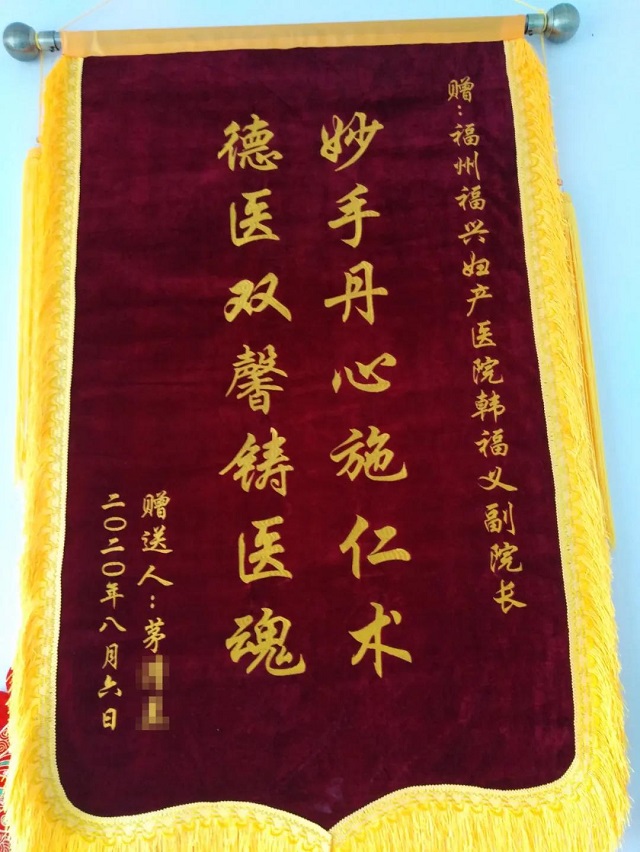 赠：福州福兴妇产医院韩福义副院长
妙手丹心施仁术
德医双馨铸医魂
赠送人：茅
二〇二〇年八月六日